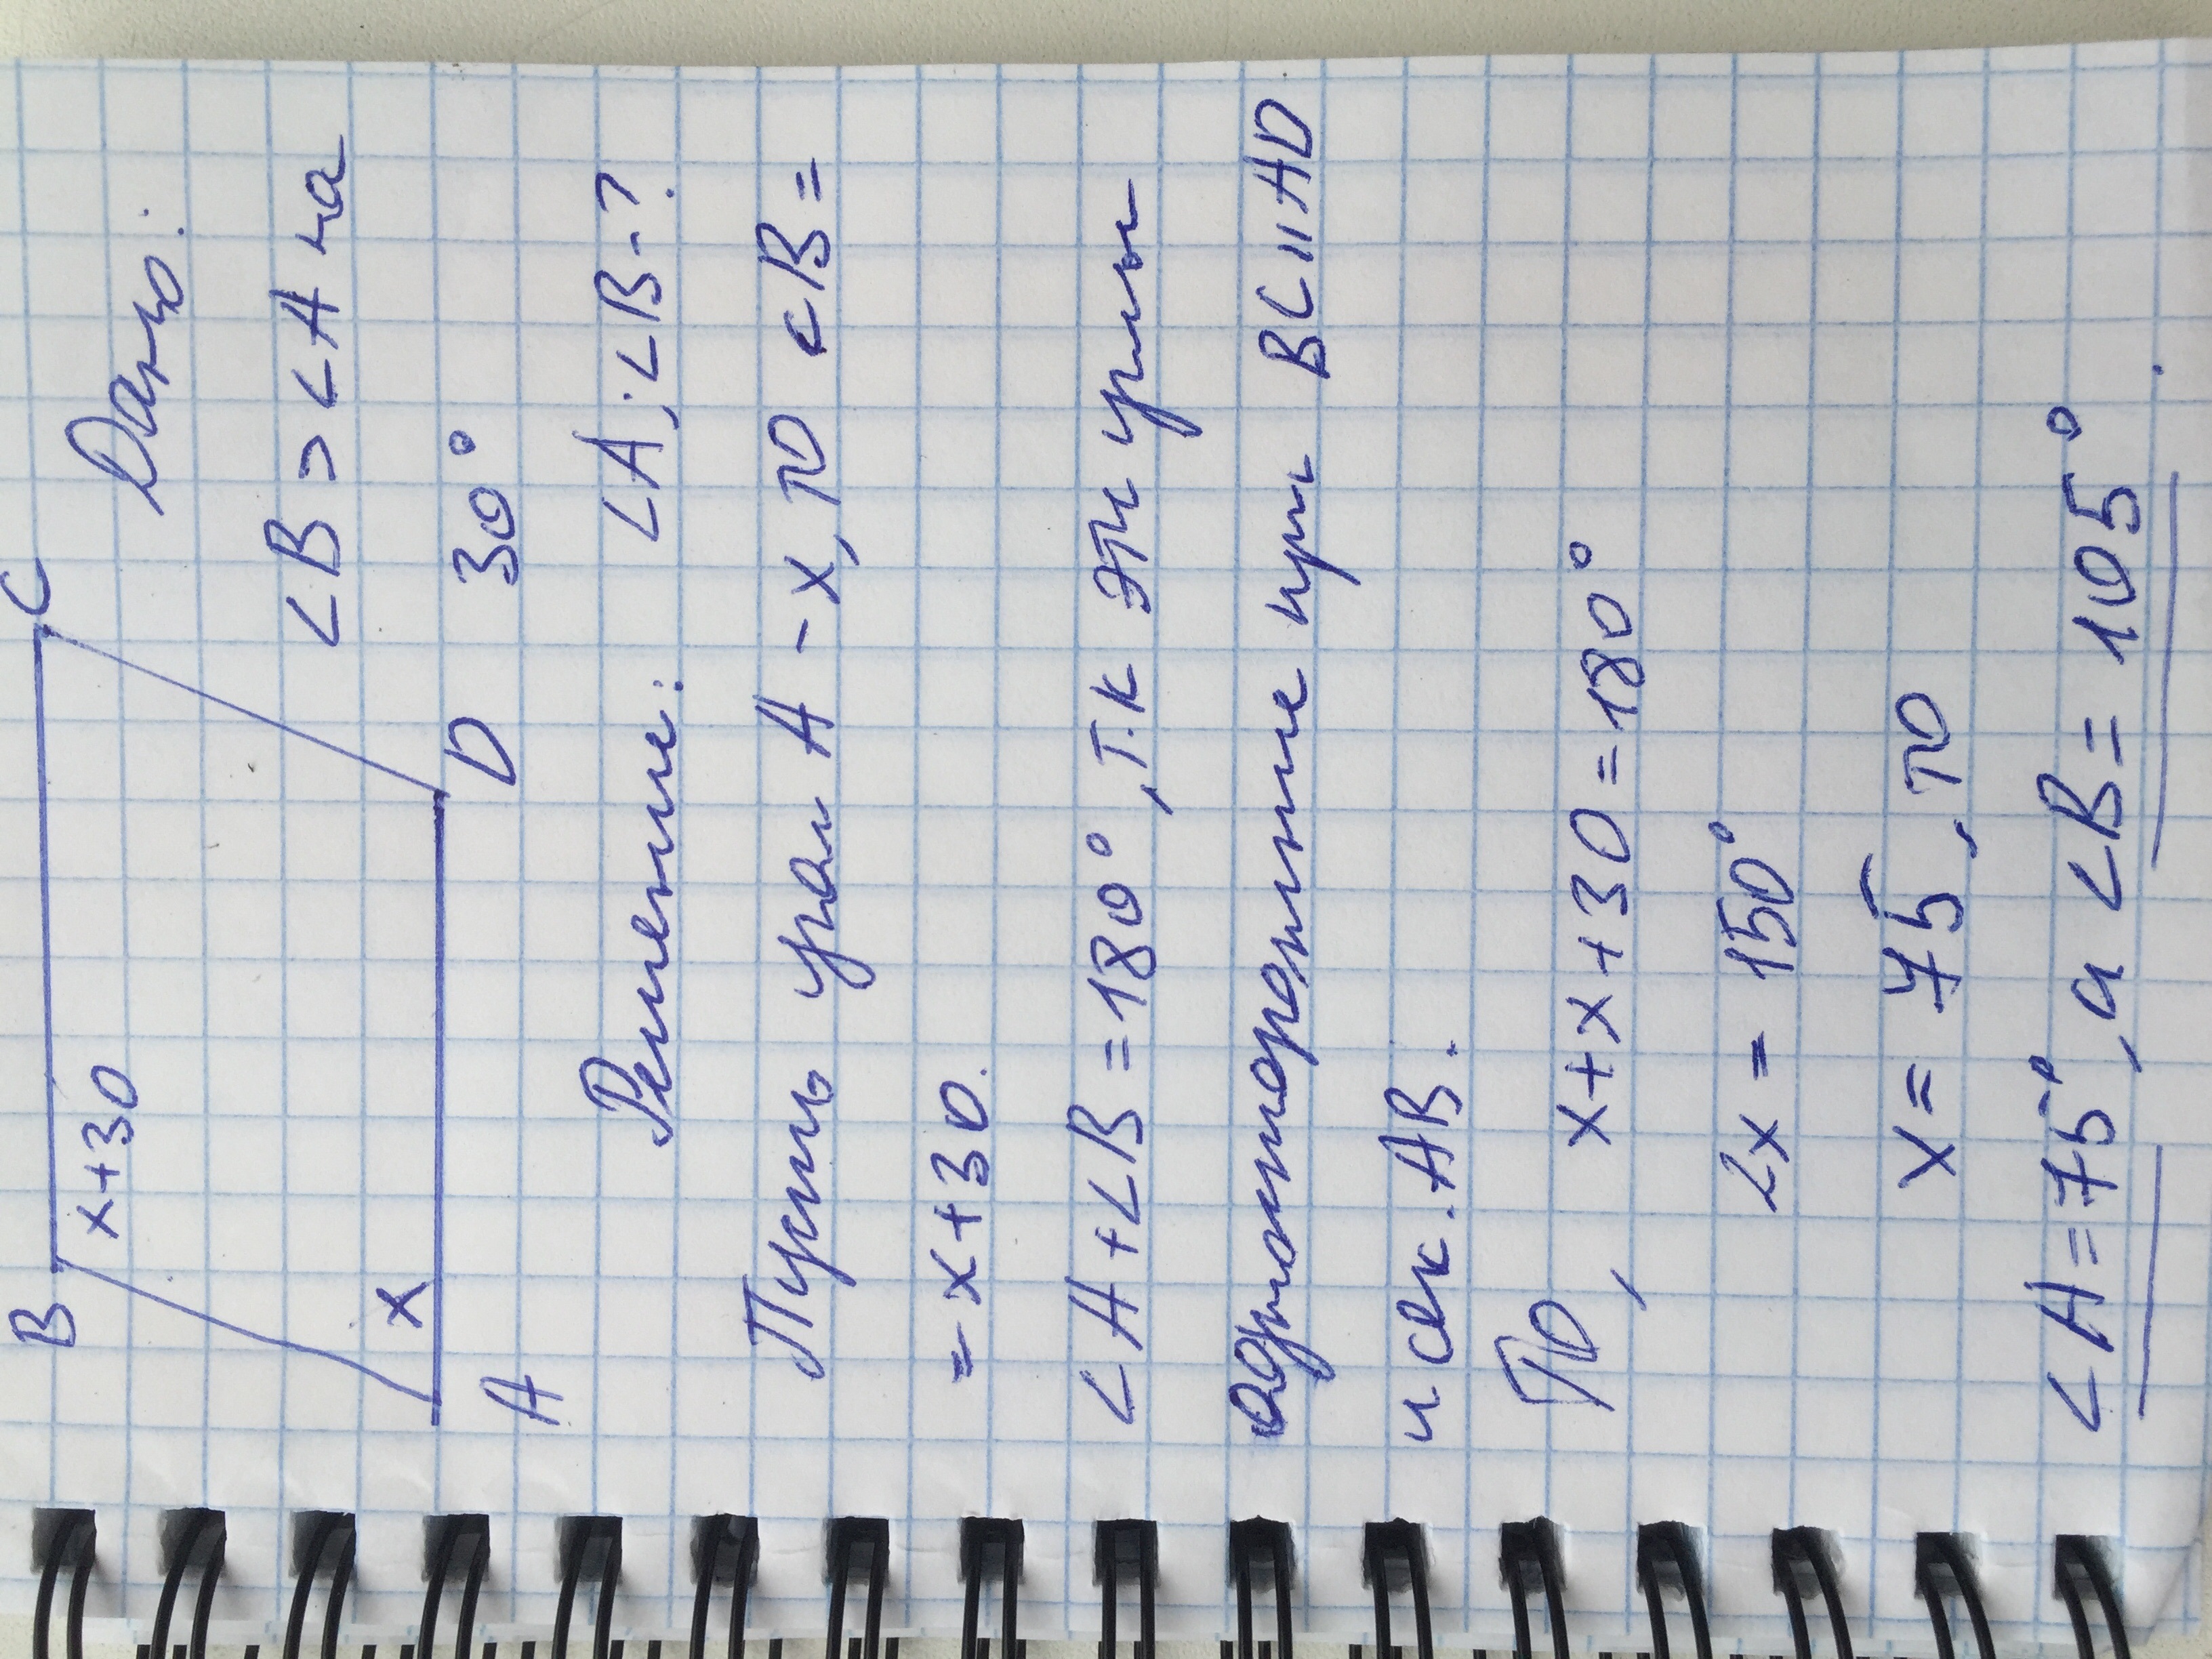 B C Дано:
x+30
∠B > ∠A на
x
A D 30°
Решение: ∠A; ∠B-?
Пусть угол A - x, то ∠B =
= x+30.
∠A+∠B=180°, т.к эти углы
односторонние при BC॥AD
и сек. AB.
То, x+x+30=180°
2x = 150°
x = 75, то
∠A=75°, а ∠B=105°.